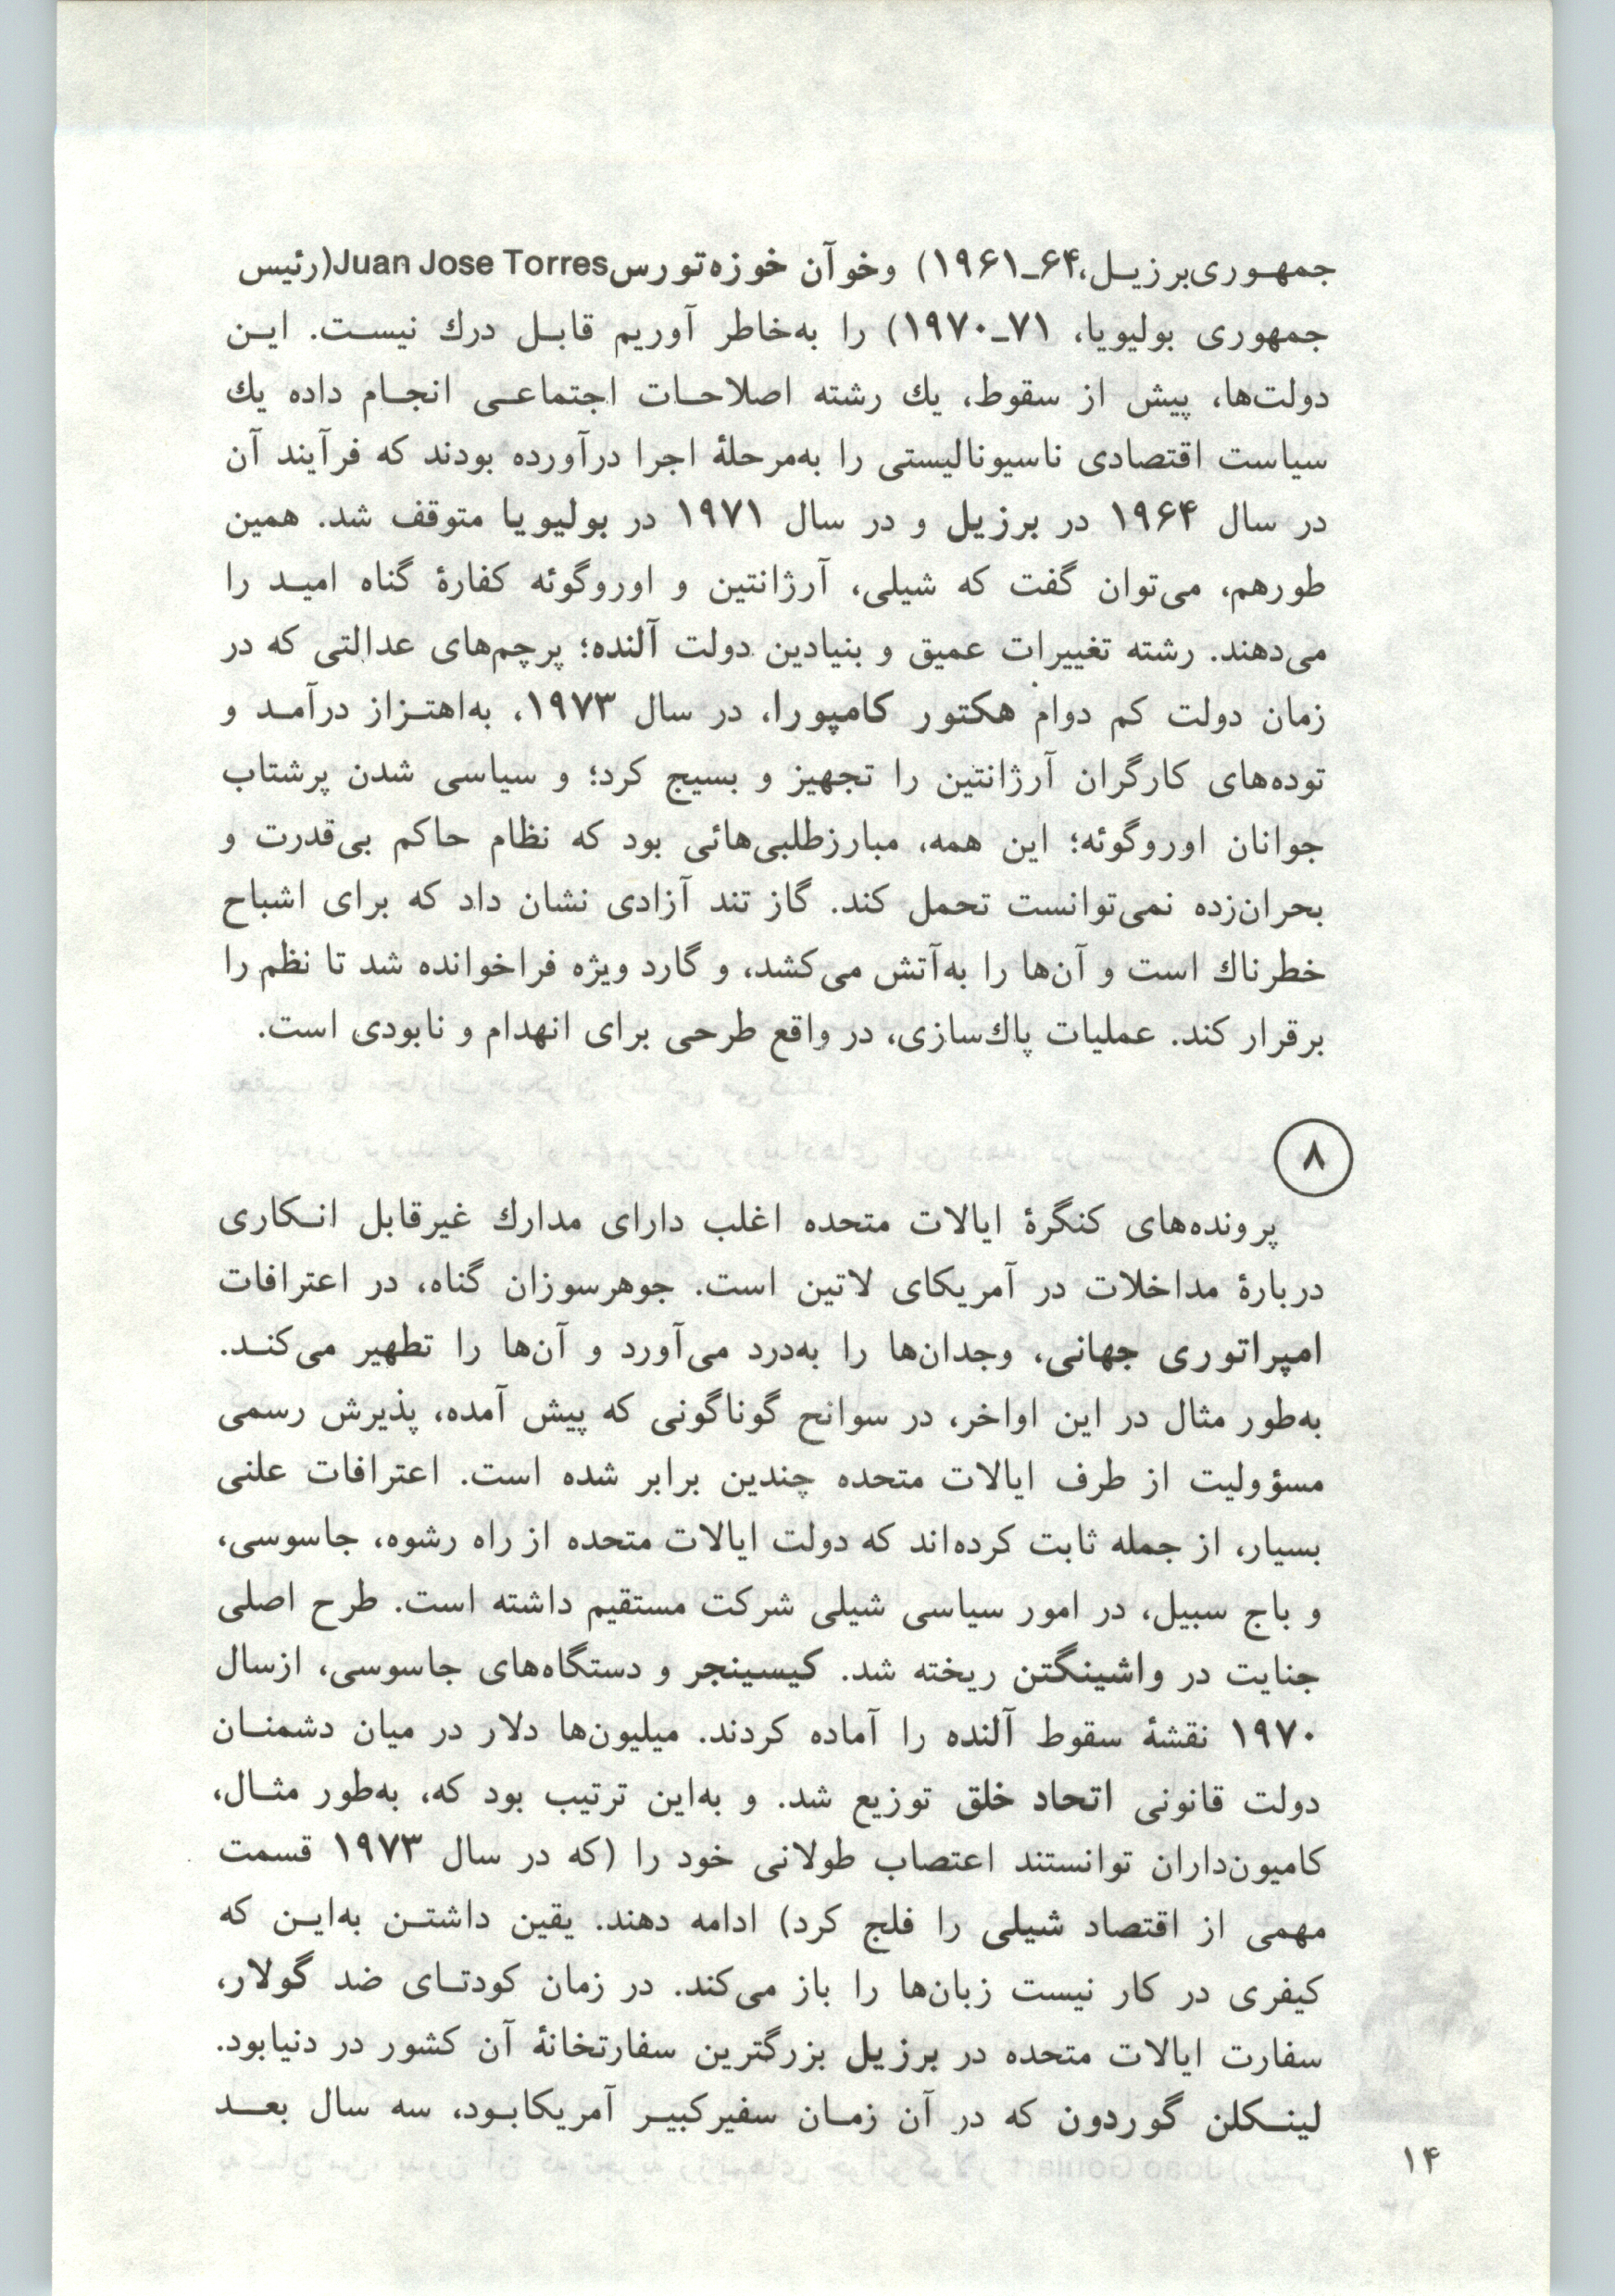 جمهوری‌برزیل،۶۴ـ۱۹۶۱) وخوآن خوزه‌تورسJuan Jose Torres(رئیس
جمهوری بولیویا، ۷۱ـ۱۹۷۰) را به‌خاطر آوریم قابل درك نیست. این
دولت‌ها، پیش از سقوط، یك رشته اصلاحات اجتماعی انجام داده یك
سیاست اقتصادی ناسیونالیستی را به‌مرحلهٔ اجرا درآورده بودند که فرآیند آن
در سال ۱۹۶۴ در برزیل و در سال ۱۹۷۱ در بولیویا متوقف شد. همین
طورهم، می‌توان گفت که شیلی، آرژانتین و اوروگوئه کفارهٔ گناه امید را
می‌دهند. رشته تغییرات عمیق و بنیادین دولت آلنده؛ پرچم‌های عدالتی که در
زمان دولت کم دوام هکتور کامپورا، در سال ۱۹۷۳، به‌اهتزاز درآمد و
توده‌های کارگران آرژانتین را تجهیز و بسیج کرد؛ و سیاسی شدن پرشتاب
جوانان اوروگوئه؛ این همه، مبارزطلبی‌هائی بود که نظام حاکم بی‌قدرت و
بحران‌زده نمی‌توانست تحمل کند. گاز تند آزادی نشان داد که برای اشباح
خطرناك است و آن‌ها را به‌آتش می‌کشد، و گارد ویژه فراخوانده شد تا نظم را
برقرار کند. عملیات پاك‌سازی، در واقع طرحی برای انهدام و نابودی است.
۸
پرونده‌های کنگرهٔ ایالات متحده اغلب دارای مدارك غیرقابل انکاری
دربارهٔ مداخلات در آمریکای لاتین است. جوهرسوزان گناه، در اعترافات
امپراتوری جهانی، وجدان‌ها را به‌درد می‌آورد و آن‌ها را تطهیر می‌کند.
به‌طور مثال در این اواخر، در سوانح گوناگونی که پیش آمده، پذیرش رسمی
مسؤولیت از طرف ایالات متحده چندین برابر شده است. اعترافات علنی
بسیار، از جمله ثابت کرده‌اند که دولت ایالات متحده از راه رشوه، جاسوسی،
و باج سبیل، در امور سیاسی شیلی شرکت مستقیم داشته است. طرح اصلی
جنایت در واشینگتن ریخته شد. کیسینجر و دستگاه‌های جاسوسی، ازسال
۱۹۷۰ نقشهٔ سقوط آلنده را آماده کردند. میلیون‌ها دلار در میان دشمنان
دولت قانونی اتحاد خلق توزیع شد. و به‌این ترتیب بود که، به‌طور مثال،
کامیون‌داران توانستند اعتصاب طولانی خود را (که در سال ۱۹۷۳ قسمت
مهمی از اقتصاد شیلی را فلج کرد) ادامه دهند. یقین داشتن به‌این که
کیفری در کار نیست زبان‌ها را باز می‌کند. در زمان کودتای ضد گولار،
سفارت ایالات متحده در برزیل بزرگترین سفارتخانهٔ آن کشور در دنیابود.
لینکلن گوردون که در آن زمان سفیرکبیر آمریکابود، سه سال بعد
۱۴